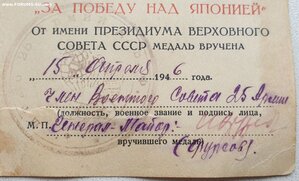 „ЗА ПОБЕДУ НАД ЯПОНИЕЙ"
ОТ ИМЕНИ ПРЕЗИДИУМА ВЕРХОВНОГО
СОВЕТА СССР МЕДАЛЬ ВРУЧЕНА
15 Апреля 1946 года.
Член Военного Совета 25 Армии
(должность, военное звание и подпись лица,
М.П. Генерал-Майор:
вручившего медаль)